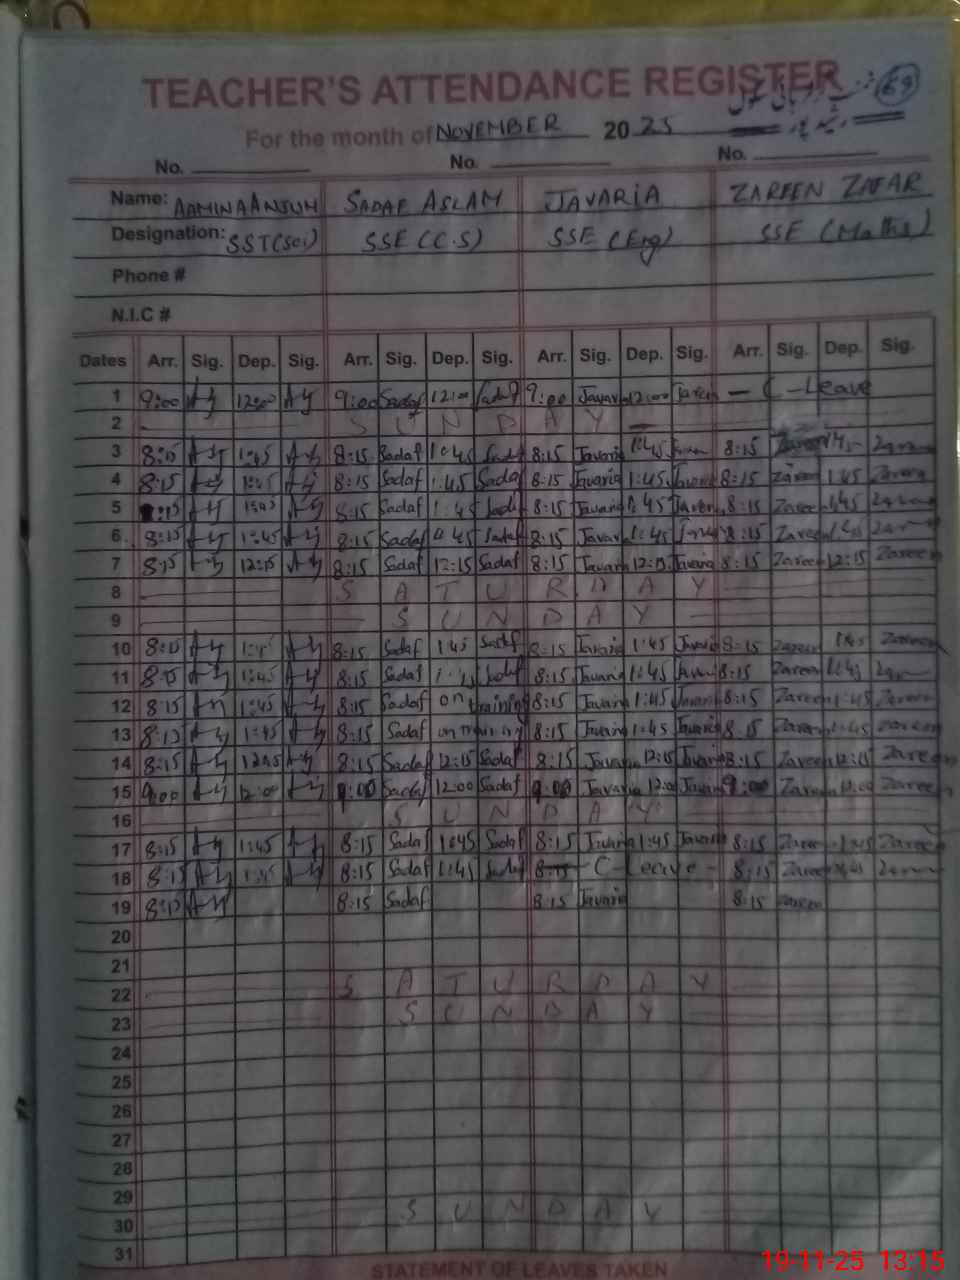 TEACHER'S ATTENDANCE REGISTER
69
For the month of NOVEMBER 2025
No. No. No.
Name: AAMINA ANJUM SADAF ASLAM JAVARIA ZAREEN ZAFAR
Designation: SST(Sci) SSE (C.S) SSE (Eng) SSE (Maths)
Phone #
N.I.C #
Dates Arr. Sig. Dep. Sig. Arr. Sig. Dep. Sig. Arr. Sig. Dep. Sig. Arr. Sig. Dep. Sig.
1 9:00 12:00 9:00 Sadaf 12:00 Sadaf 9:00 Javaria 12:00 — C-Leave
2 SUNDAY
3 8:15 1:45 8:15 Sadaf 1:45 8:15 Javaria 1:45 8:15 Zareen
4 8:15 1:45 8:15 Sadaf 1:45 Sadaf 8:15 Javaria 1:45 8:15 Zareen 1:45 Zareen
5 8:15 Sadaf 1:45 8:15 Javaria 1:45 8:15 Zareen 1:45
6 8:15 1:45 8:15 Sadaf 1:45 Sadaf 8:15 Javaria 1:45 8:15 Zareen
7 8:15 12:15 8:15 Sadaf 12:15 Sadaf 8:15 Javaria 12:15 Javaria 8:15 Zareen 12:15 Zareen
8 SATURDAY
9 SUNDAY
10 8:15 8:15 Sadaf 1:45 Sadaf 8:15 Javaria 1:45 Javaria 8:15 Zareen 1:45 Zareen
11 8:15 1:45 8:15 Sadaf Sadaf 8:15 Javaria 1:45 Javaria 8:15 Zareen 1:45
12 8:15 1:45 8:15 Sadaf on training 8:15 Javaria 1:45 Javaria 8:15 Zareen 1:45 Zareen
13 8:15 1:45 8:15 Sadaf on training 8:15 Javaria 1:45 Javaria 8:15 Zareen 1:45 Zareen
14 8:15 12:15 8:15 Sadaf 12:15 Sadaf 8:15 Javaria 12:15 Javaria 8:15 Zareen 12:15 Zareen
15 9:00 12:00 9:00 Sadaf 12:00 Sadaf 9:00 Javaria 12:00 Javaria 9:00 Zareen 12:00 Zareen
16 SUNDAY
17 8:15 1:45 8:15 Sadaf 1:45 Sadaf 8:15 Javaria 1:45 Javaria 8:15 Zareen 1:45 Zareen
18 8:15 1:45 8:15 Sadaf 1:45 Sadaf 8:15 C-Leave - 8:15 Zareen 1:45
19 8:15 8:15 Sadaf 8:15 Javaria 8:15 Zareen
20
21
22 SATURDAY
23 SUNDAY
24
25
26
27
28
29
30 SUNDAY
31
STATEMENT OF LEAVES TAKEN
19-11-25 13:15